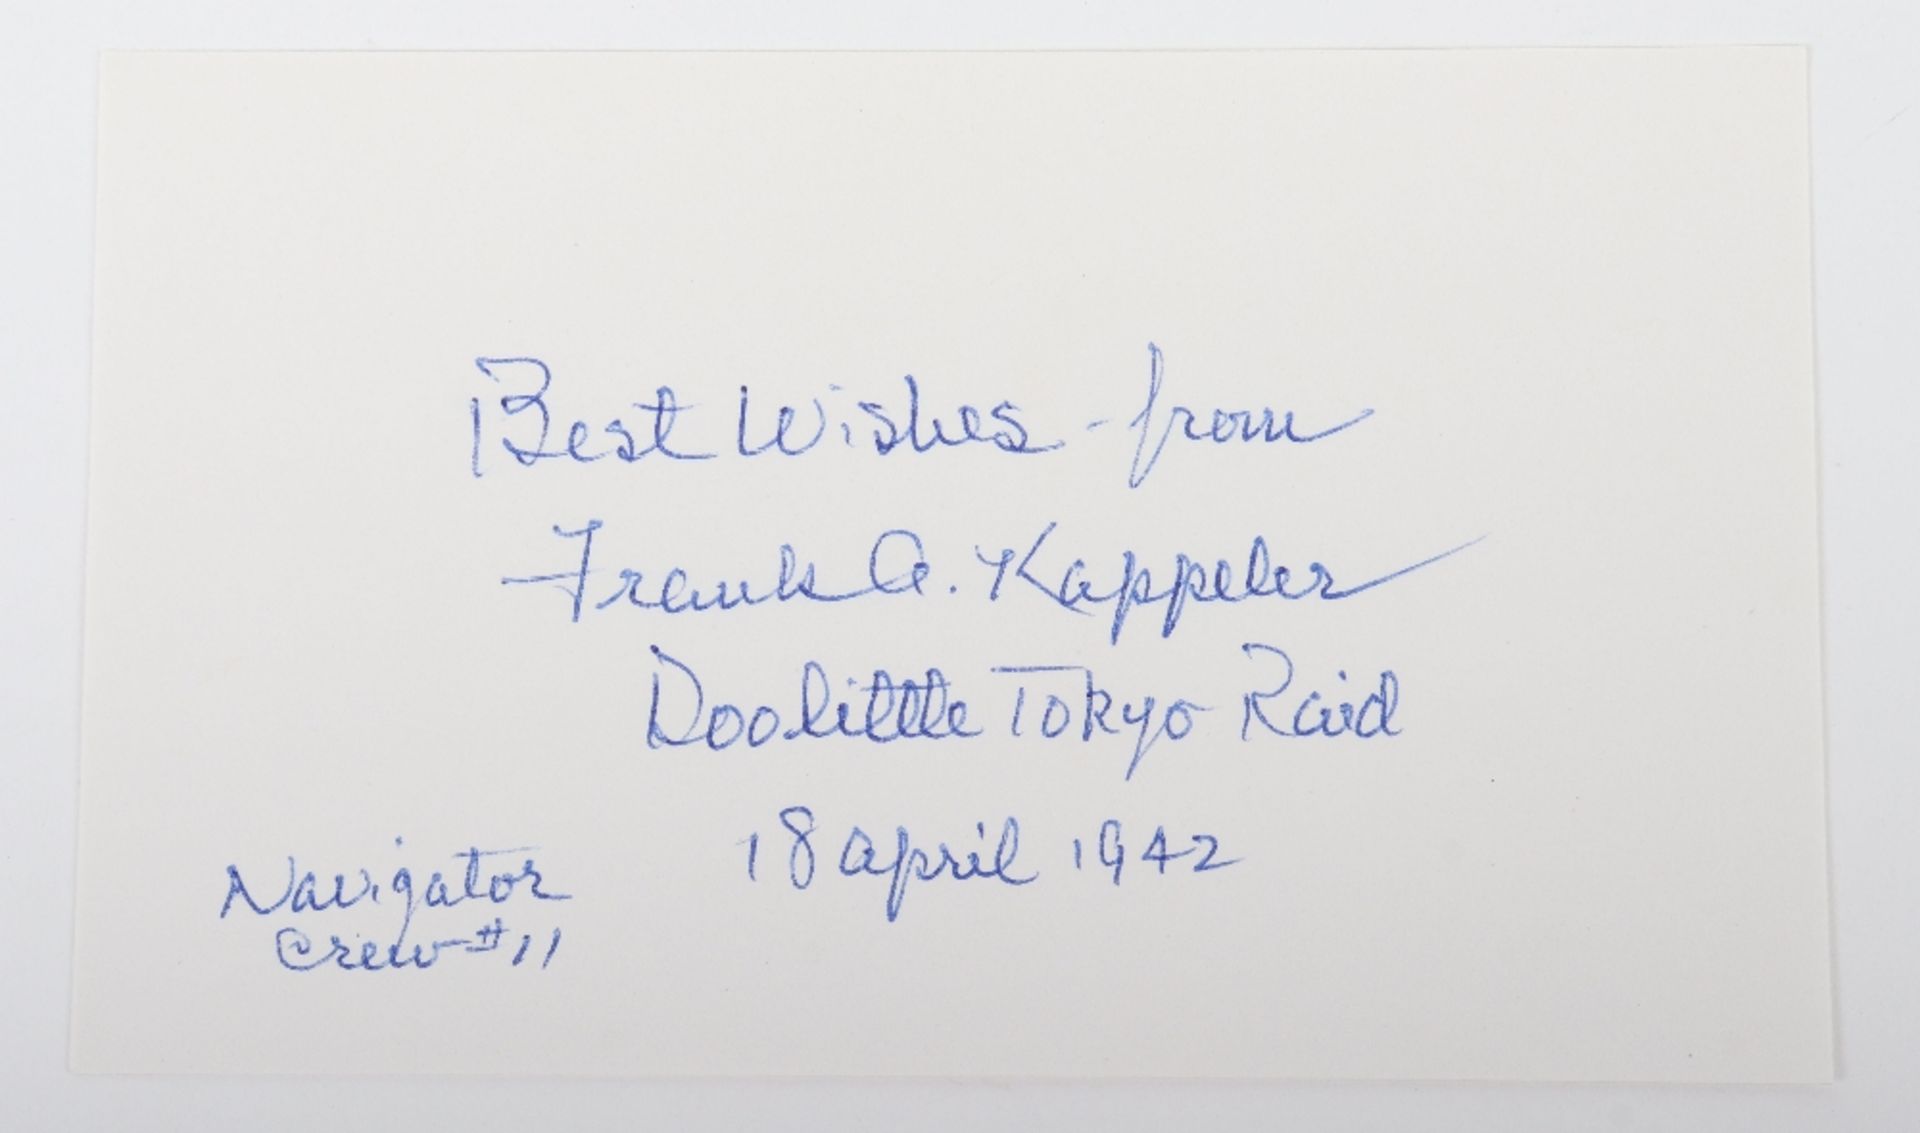 Best Wishes - from
Frank A. Kappeler
Doolittle Tokyo Raid
18 April 1942
Navigator
Crew #11